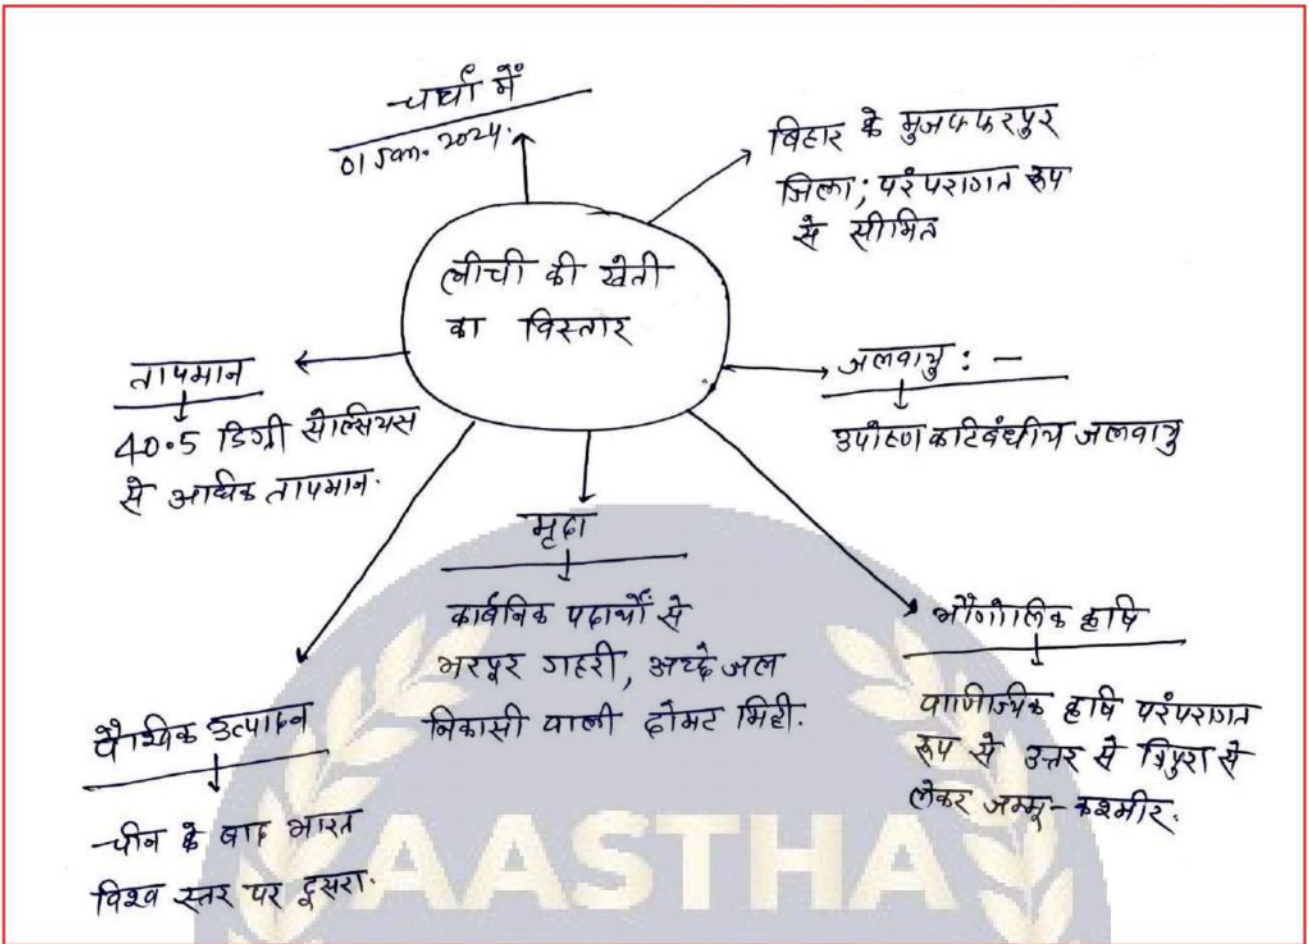 चर्चा में
01 Jan. 2024.
बिहार के मुजफ्फरपुर
जिला; परंपरागत रूप
से सीमित
लीची की खेती
का विस्तार
तापमान
40.5 डिग्री सेल्सियस
से अधिक तापमान.
जलवायु : —
उपोष्ण कटिबंधीय जलवायु
मृदा
कार्बनिक पदार्थों से
भरपूर गहरी, अच्छे जल
निकासी वाली दोमट मिट्टी.
भौगोलिक कृषि
वाणिज्यिक कृषि परंपरागत
रूप से उत्तर से त्रिपुरा से
लेकर जम्मू-कश्मीर.
वैश्विक उत्पादन
चीन के बाद भारत
विश्व स्तर पर दूसरा.
AASTHA